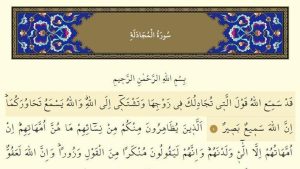 سُورَةُ الْمُجَادَلَةِ
بِسْمِ اللَّهِ الرَّحْمَٰنِ الرَّحِيمِ
قَدْ سَمِعَ اللَّهُ قَوْلَ الَّتِي تُجَادِلُكَ فِي زَوْجِهَا وَتَشْتَكِي إِلَى اللَّهِ وَاللَّهُ يَسْمَعُ تَحَاوُرَكُمَا
إِنَّ اللَّهَ سَمِيعٌ بَصِيرٌ ۝ الَّذِينَ يُظَاهِرُونَ مِنكُم مِّن نِّسَائِهِم مَّا هُنَّ أُمَّهَاتِهِمْ إِنْ
أُمَّهَاتُهُمْ إِلَّا اللَّائِي وَلَدْنَهُمْ وَإِنَّهُمْ لَيَقُولُونَ مُنكَرًا مِّنَ الْقَوْلِ وَزُورًا وَإِنَّ اللَّهَ لَعَفُوٌّ